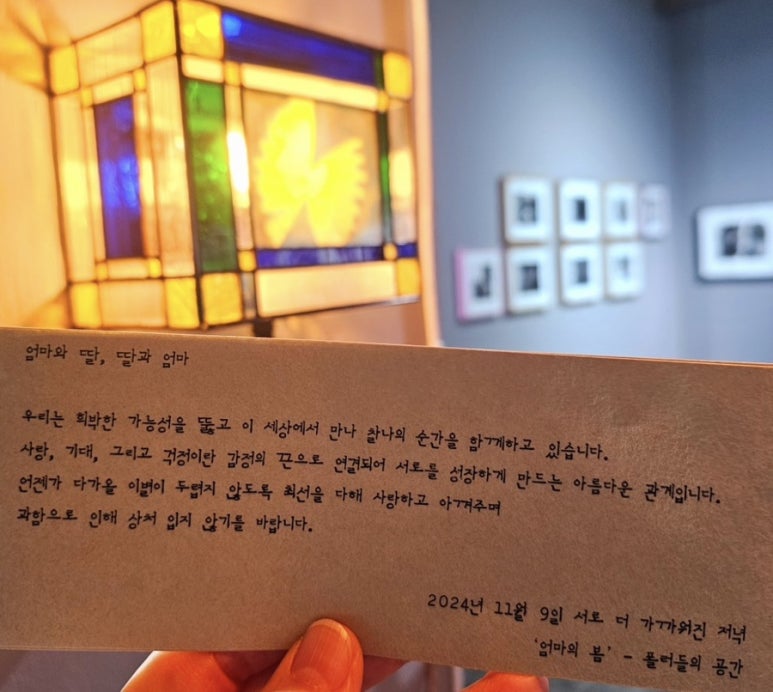 엄마와 딸, 딸과 엄마
우리는 희박한 가능성을 뚫고 이 세상에서 만나 찰나의 순간을 함께하고 있습니다.
사랑, 기대, 그리고 걱정이란 감정의 끈으로 연결되어 서로를 성장하게 만드는 아름다운 관계입니다.
언젠가 다가올 이별이 두렵지 않도록 최선을 다해 사랑하고 아껴주며
과함으로 인해 상처 입지 않기를 바랍니다.
2024년 11월 9일 서로 더 가까워진 저녁
'엄마의 봄' - 폴러들의 공간